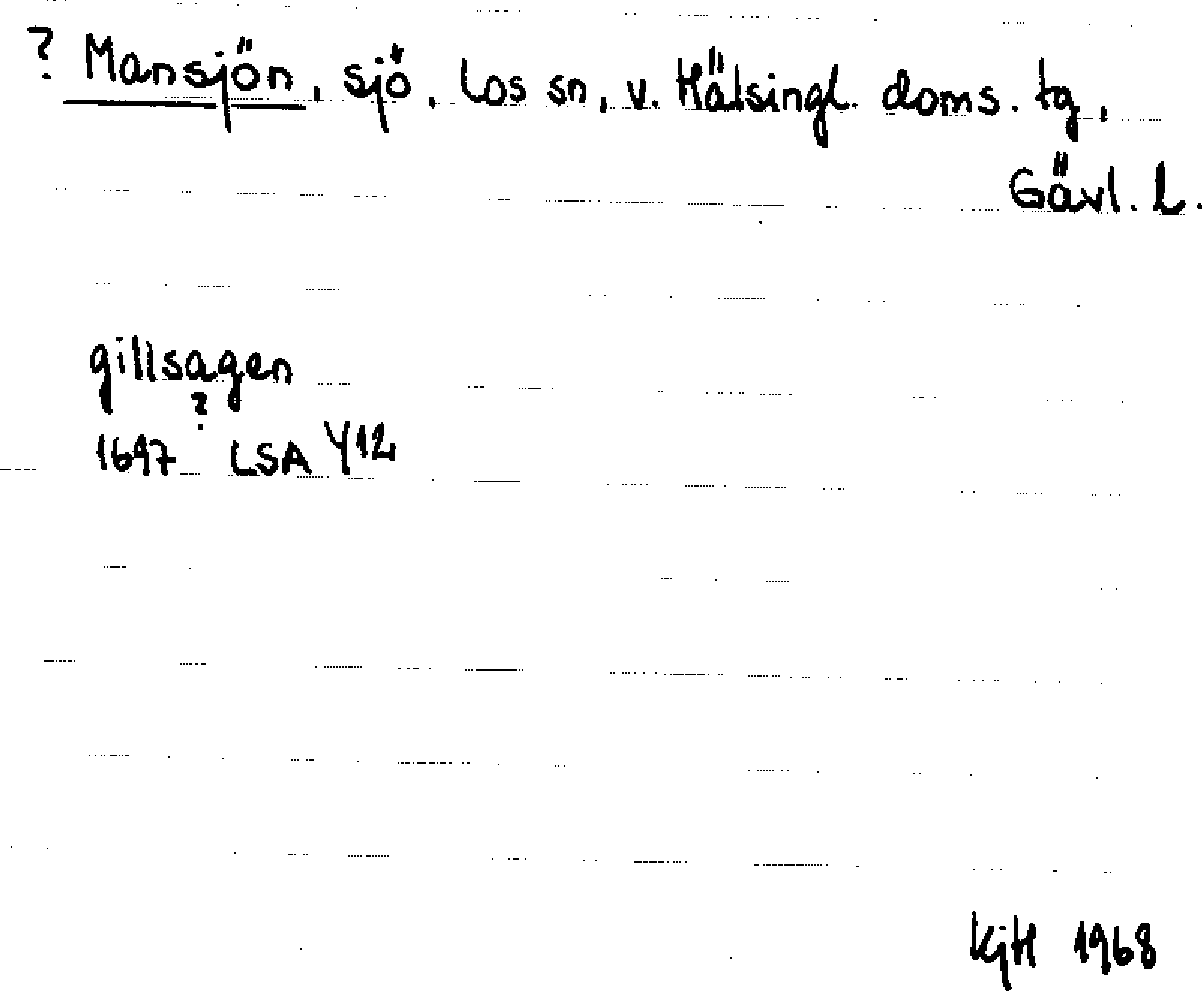 ? Mansjön, sjö, Los sn, v. Hälsingl. doms. tg,
Gävl. L.
gillsagen
?
1697 LSA Y12
KjH 1968